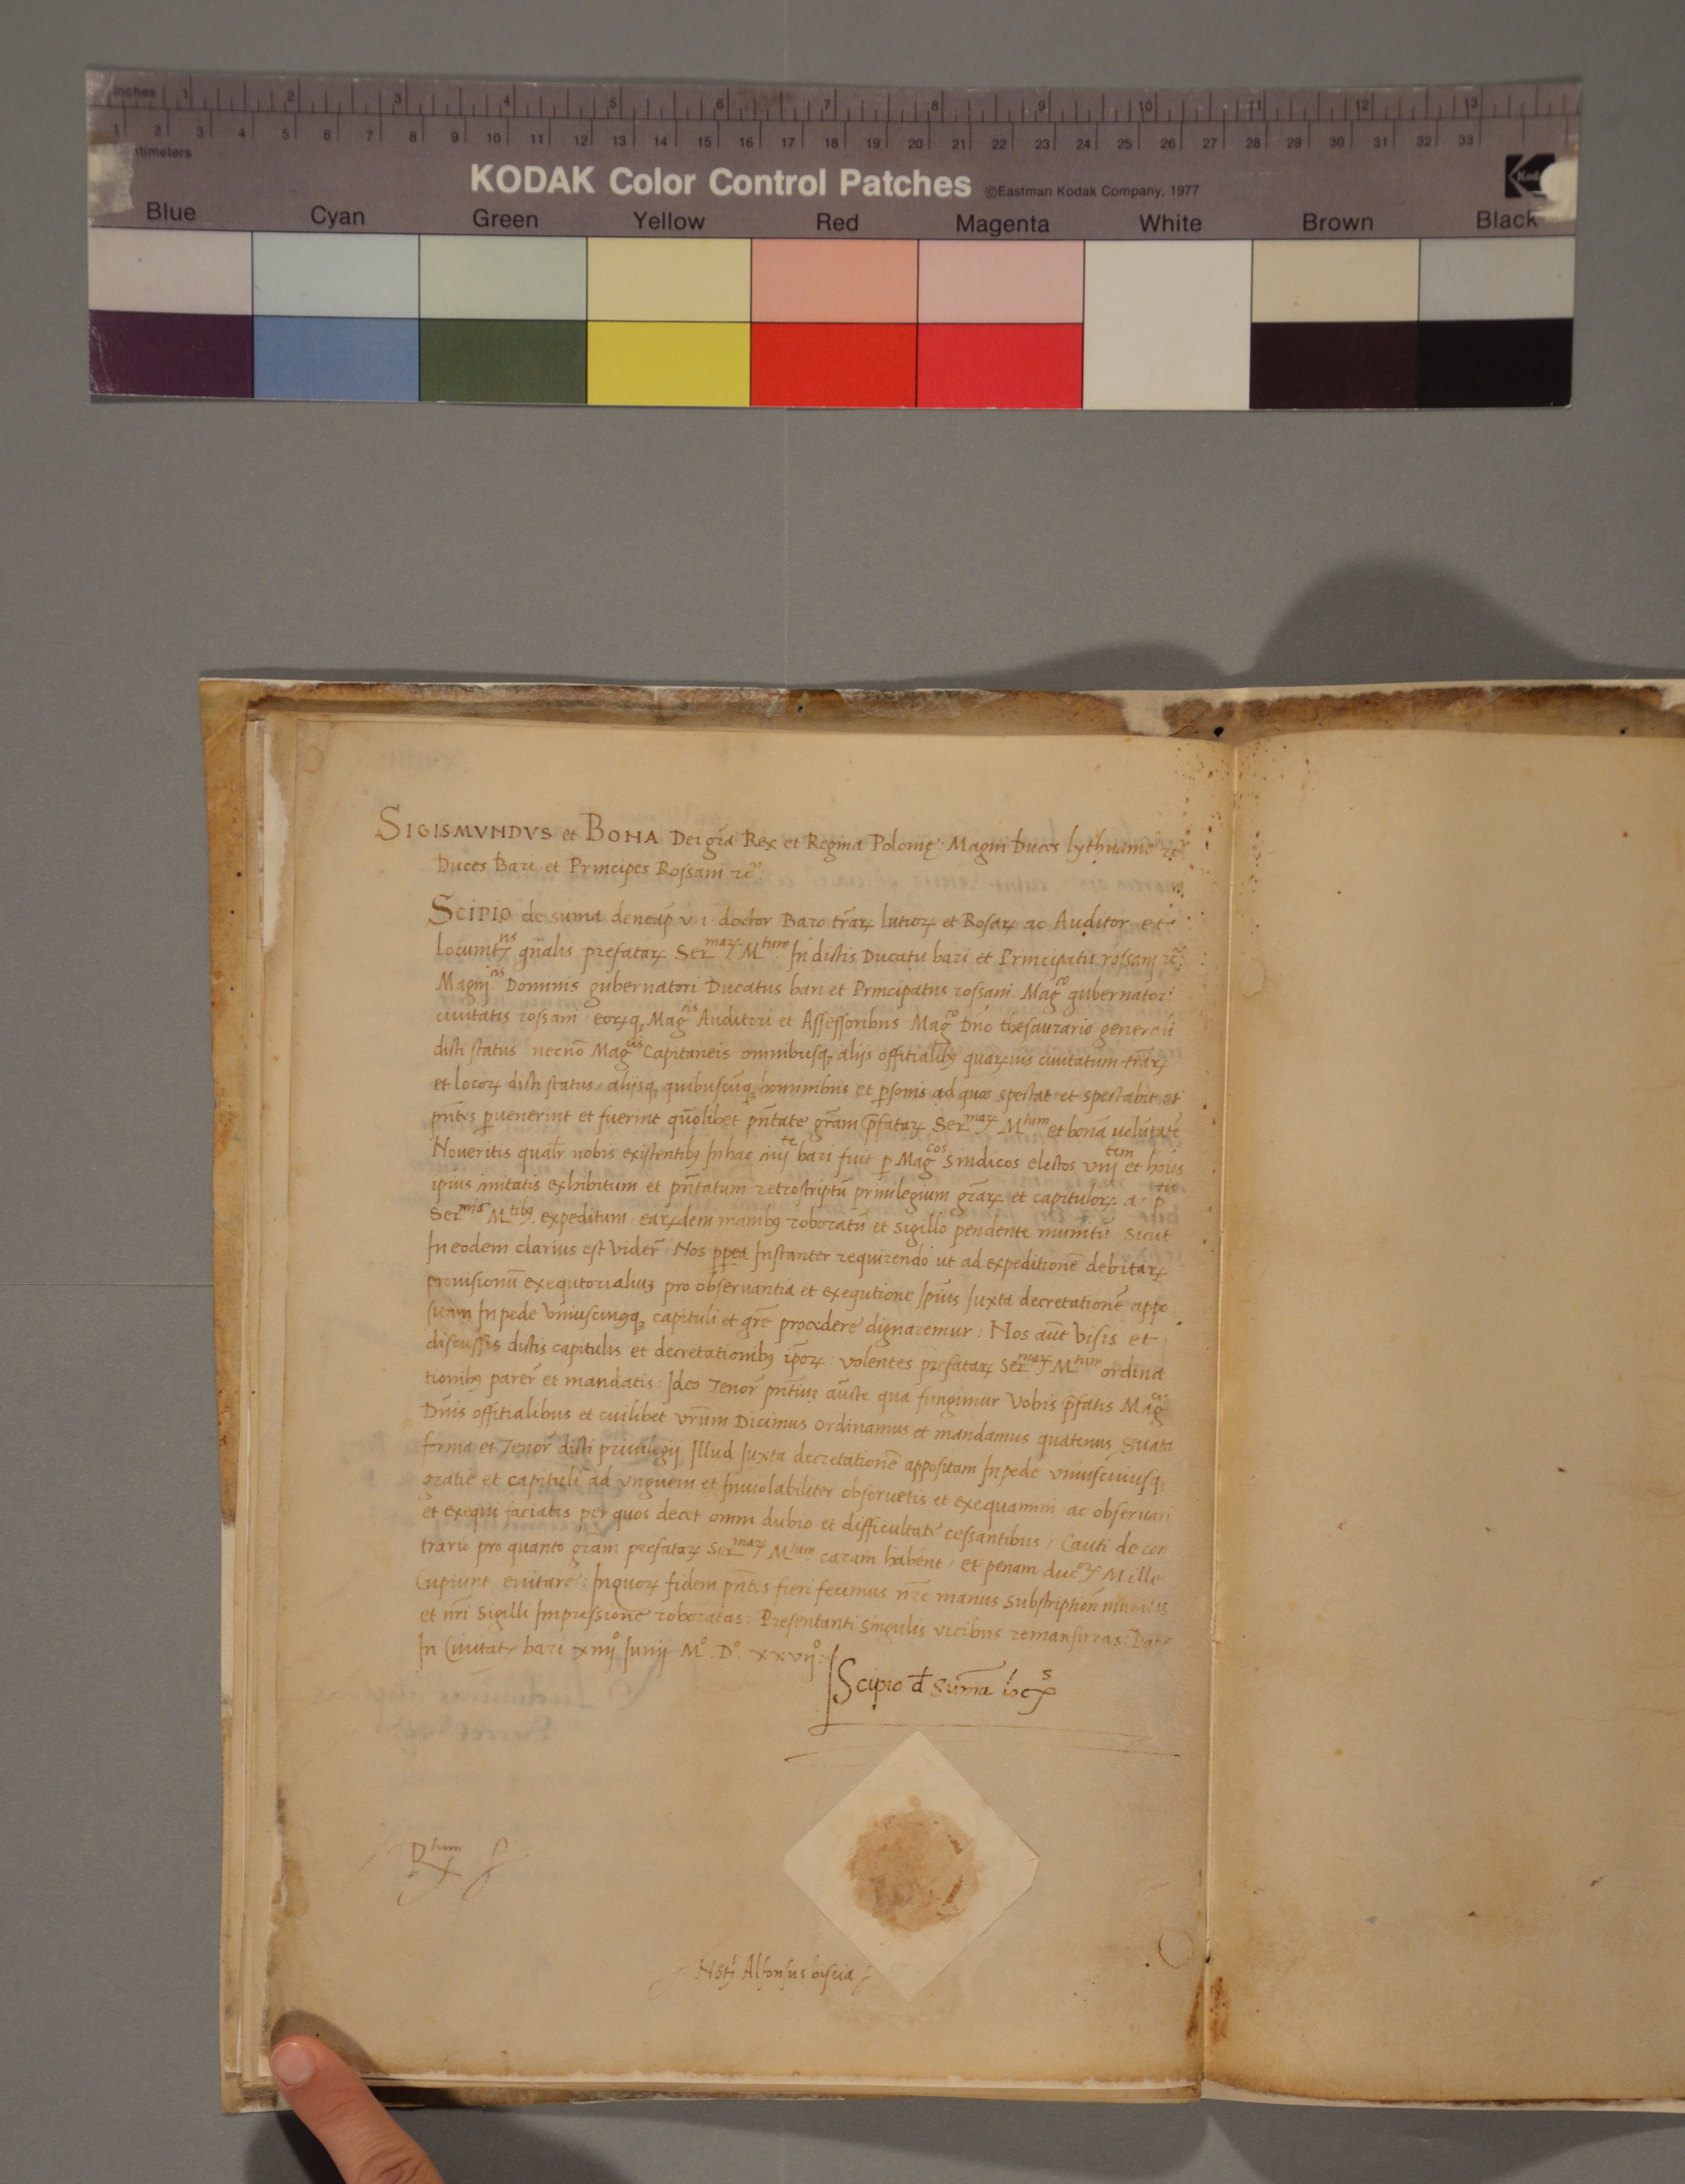 inches 1 2 3 4 5 6 7 8 9 10 11 12 13
1 2 3 4 5 6 7 8 9 10 11 12 13 14 15 16 17 18 19 20 21 22 23 24 25 26 27 28 29 30 31 32 33
timeters
KODAK Color Control Patches ©Eastman Kodak Company, 1977
Blue Cyan Green Yellow Red Magenta White Brown Black
SIGISMVNDVS et BONA Dei gr̃a Rex et Regina Polonię Magni Duces lythuanie
Duces Bari et Principes Rossani
SCIPIO de suma de neap̃ v. i doctor Baro tr̃aꝝ lutioꝝ et Rosaꝝ ac Auditor et
Locumt^ns gñalis prefataꝝ Ser^maꝝ M^tum In dictis Ducatu bari et Principatu rossani
Mag^cis Dominis gubernatori Ducatus bari et Principatus rossani Mag^co gubernatori
civitatis rossani eorꝝq Mag^cis Auditori et Assessoribus Mag^co Dño thesaurario generali
dicti status necnõ Mag^cis Capitaneis omnibusq alijs offitialibꝰ quarꝝvis civitatum tr̃aꝝ
et locoꝝ dicti status alijsq quibuscũq hominibus et ꝑsonis ad quos spectat et spectabit et
pñtes ꝑvenerint et fuerint quõlibet pñtate gr̃am p̃fataꝝ Ser^maꝝ M^tum et bonã volũtatẽ
Noveritis qualr̃ nobis existentibꝰ In hac bari fuit ꝑ Mag^cos Sindicos electos et hoĩes
ipius exhibitum et pñtatum retroscriptũ privilegium gr̃aꝝ et capituloꝝ a
Ser^mis M^tibꝰ expeditum earꝝdem manibꝰ roboratũ et sigillo pendente munitũ sicut
In eodem clarius est viderẽ Nos Instanter requirendo ut ad expeditionẽ debitaꝝ
provisionũ exequtorialiuꝫ pro observantia et exequtione Ip̃ius Iuxta decretationẽ appo
sitam In pede Vniuscuiusq capituli et gr̃e procedere dignaremur: Nos aũt Visis et
discussis dictis capitulis et decretationibꝰ ip̃oꝝ: volentes prefataꝝ Ser^maꝝ M^tum ordina
tionibꝰ parerẽ et mandatis: Idco Tenorẽ pñtiuꝫ aũcte qua fungimur Vobis p̃fatis Mag^cis
Dñis offitialibus et cuilibet vr̃um Dicimus ordinamus et mandamus quatenus
forma et Tenorẽ dicti privilegij Illud Iuxta decretationẽ appositam In pede vniuscuiusq
gratie et capituli ad vnguem et Inviolabiliter observetis et exequamini ac observari
et exequi faciatis per quos decet omni dubio et difficultate cessantibus Cauti de con
trario pro quanto gr̃am prefataꝝ Ser^maꝝ M^tum caram habent et penam ducoꝝ Mille
Cupiunt evitare: In quoꝝ fidem pñtes fieri fecimus nr̃e manus subscriptiõn munitas
et nr̃i Sigilli Impressione roboratas: Presentanti singulis vicibus remansuras: Dat
In Civitate bari Iunij M° D° xxvij°
Scipio đ Suma̅ loc^s
Not^s Alfonsus biscia